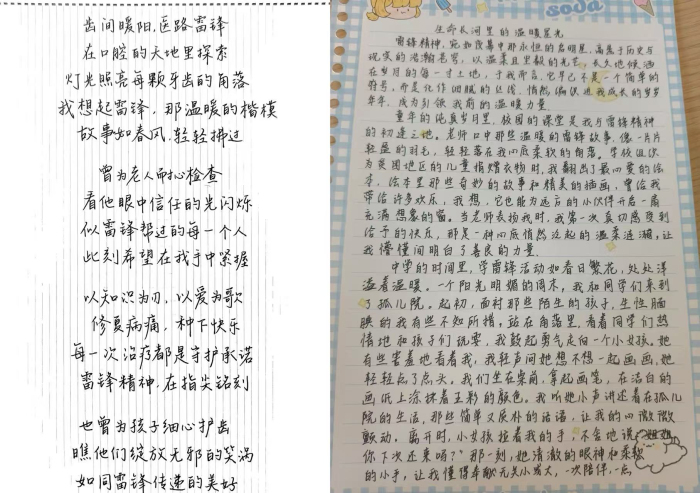 齿间暖阳,医路雷锋
在口腔的大地里探索
灯光照亮每颗牙齿的角落
我想起雷锋,那温暖的楷模
故事如春风,轻轻拂过
曾为老人耐心检查
看他眼中信任的光闪烁
似雷锋帮过的每一个人
此刻希望在我手中紧握
以知识为刃,以爱为歌
修复病痛,种下快乐
每一次治疗都是守护承诺
雷锋精神,在指尖铭刻
也曾为孩子细心护齿
瞧他们绽放无邪的笑涡
如同雷锋传递的美好
soda
生命长河里的温暖星光
雷锋精神,宛如夜幕中那永恒的启明星,高悬于历史与
现实的浩瀚苍穹,以温柔且坚毅的光芒,长久地候洒
在岁月的每一寸土地,于我而言,它早已不是一个简单的
符号,而是化作细腻的丝线,悄然编织进我成长的岁岁
年年,成为引领我前行的温暖力量.
童年的纯真岁月里,校园的课堂是我与雷锋精神
的初逢之地。老师口中那些温暖的雷锋故事,像一片片
轻盈的羽毛,轻轻落在我心底柔软的角落。学校组织
为贫困地区的儿童捐赠衣物时,我翻出了最心爱的绘
本,绘本里那些奇妙的故事和精美的插画,曾给我
带给许多欢乐,我想,它也能为远方的小伙伴开启一扇
充满想象的窗。当老师表扬我时,我第一次真切感受到
给予的快乐,那是一种心底悄然泛起的温柔涟漪,让
我懵懂间明白了善良的力量.
中学的时间里,学雷锋活动如春日繁花,处处洋
溢着温暖。一个阳光明媚的周末,我和同学们来到
了孤儿院。起初,面对那些陌生的孩子,生性腼
腆的我有些不知所措,站在角落里,看着同学们热
情地和孩子们玩耍,我鼓起勇气走向一个小女孩。她
有些害羞地看着我,我轻声问她想不想一起画画,她
轻轻点了点头。我们坐在桌前,拿起画笔,在洁白的
画纸上涂抹着五彩的颜色。我听她小声讲述着在孤儿
院的生活,那些简单又质朴的话语,让我的心微微
颤动。离开时,小女孩拉着我的手,不舍地说:"姐姐
你下次还来吗?"那一刻,她清澈的眼神和柔软
的小手,让我懂得奉献无关小或大,一次陪伴,一点